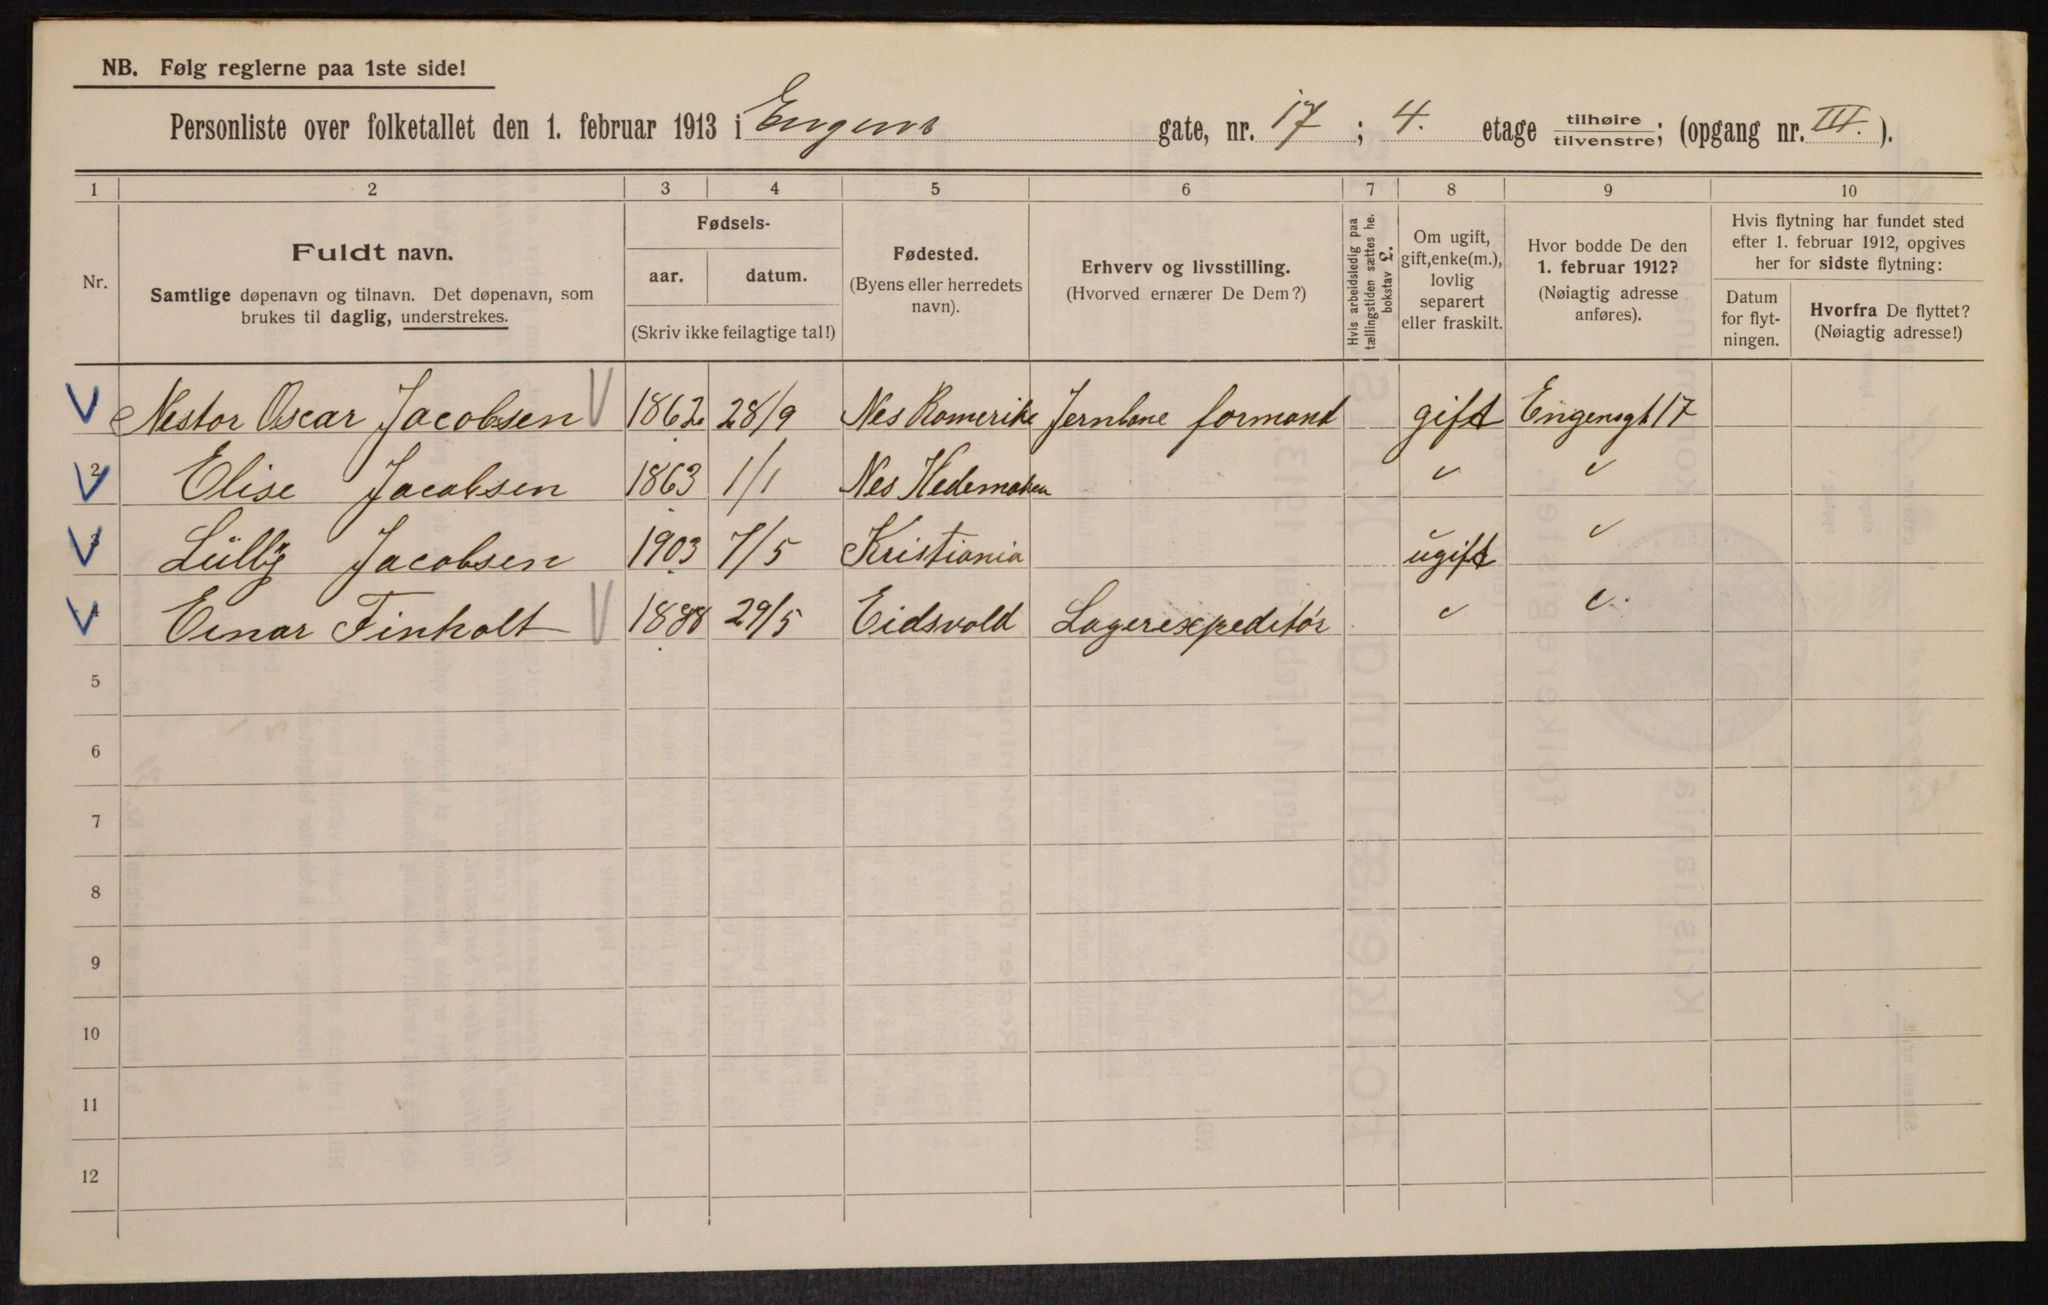 NB. Følg reglerne paa 1ste side!
Personliste over folketallet den 1. februar 1913 i Engens gate, nr. 17 ; 4. etage tilhøire/tilvenstre; (opgang nr. III. ).
1 2 3 4 5 6 7 8 9 10
Nr.
Fuldt navn.
Samtlige døpenavn og tilnavn. Det døpenavn, som
brukes til daglig, understrekes.
Fødsels-
aar. datum.
(Skriv ikke feilagtige tal!)
Fødested.
(Byens eller herredets
navn).
Erhverv og livsstilling.
(Hvorved ernærer De Dem?)
Hvis arbeidsledig paa
tællingstiden sættes he.
bokstav L.
Om ugift,
gift, enke(m.),
lovlig
separert
eller fraskilt.
Hvor bodde De den
1. februar 1912?
(Nøiagtig adresse
anføres).
Hvis flytning har fundet sted
efter 1. februar 1912, opgives
her for sidste flytning:
Datum
for flyt-
ningen.
Hvorfra De flyttet?
(Nøiagtig adresse!)
Nestor Oscar Jacobsen 1862 28/9 Nes Romerike Jernbane formand gift Engensgt 17
2 Elise Jacobsen 1863 1/1 Nes Hedemaken " "
3 Lülly Jacobsen 1903 7/5 Kristiania ugift "
4 Einar Finholt 1888 29/5 Eidsvold Lagerexpeditør " "
5
6
7
8
9
10
11
12